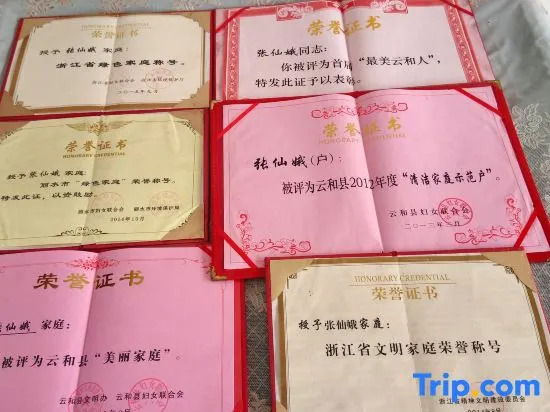 荣誉证书
HONORARY CREDENTIAL
授予 张仙娥 家庭:
浙江省绿色家庭称号。
荣誉证书
张仙娥同志:
你被评为首届“最美云和人”,
特发此证予以表彰
荣誉证书
HONORARY CREDENTIAL
授予张仙娥 家庭:
丽水市“绿色家庭”荣誉称号。
特发此证,以资鼓励。
丽水市妇女联合会 丽水市环境保护局
2014年10月
荣誉证书
HONORARY CREDENTIAL
张仙娥(户):
被评为云和县2012年度“清洁家庭示范户”。
云和县妇女联合会
二〇一三年三月
荣誉证书
张仙娥 家庭:
被评为云和县“美丽家庭”。
云和县文明办 云和县妇女联合会
HONORARY CREDENTIAL
荣誉证书
授予张仙娥家庭:
浙江省文明家庭荣誉称号
浙江省精神文明建设委员会
Trip.com